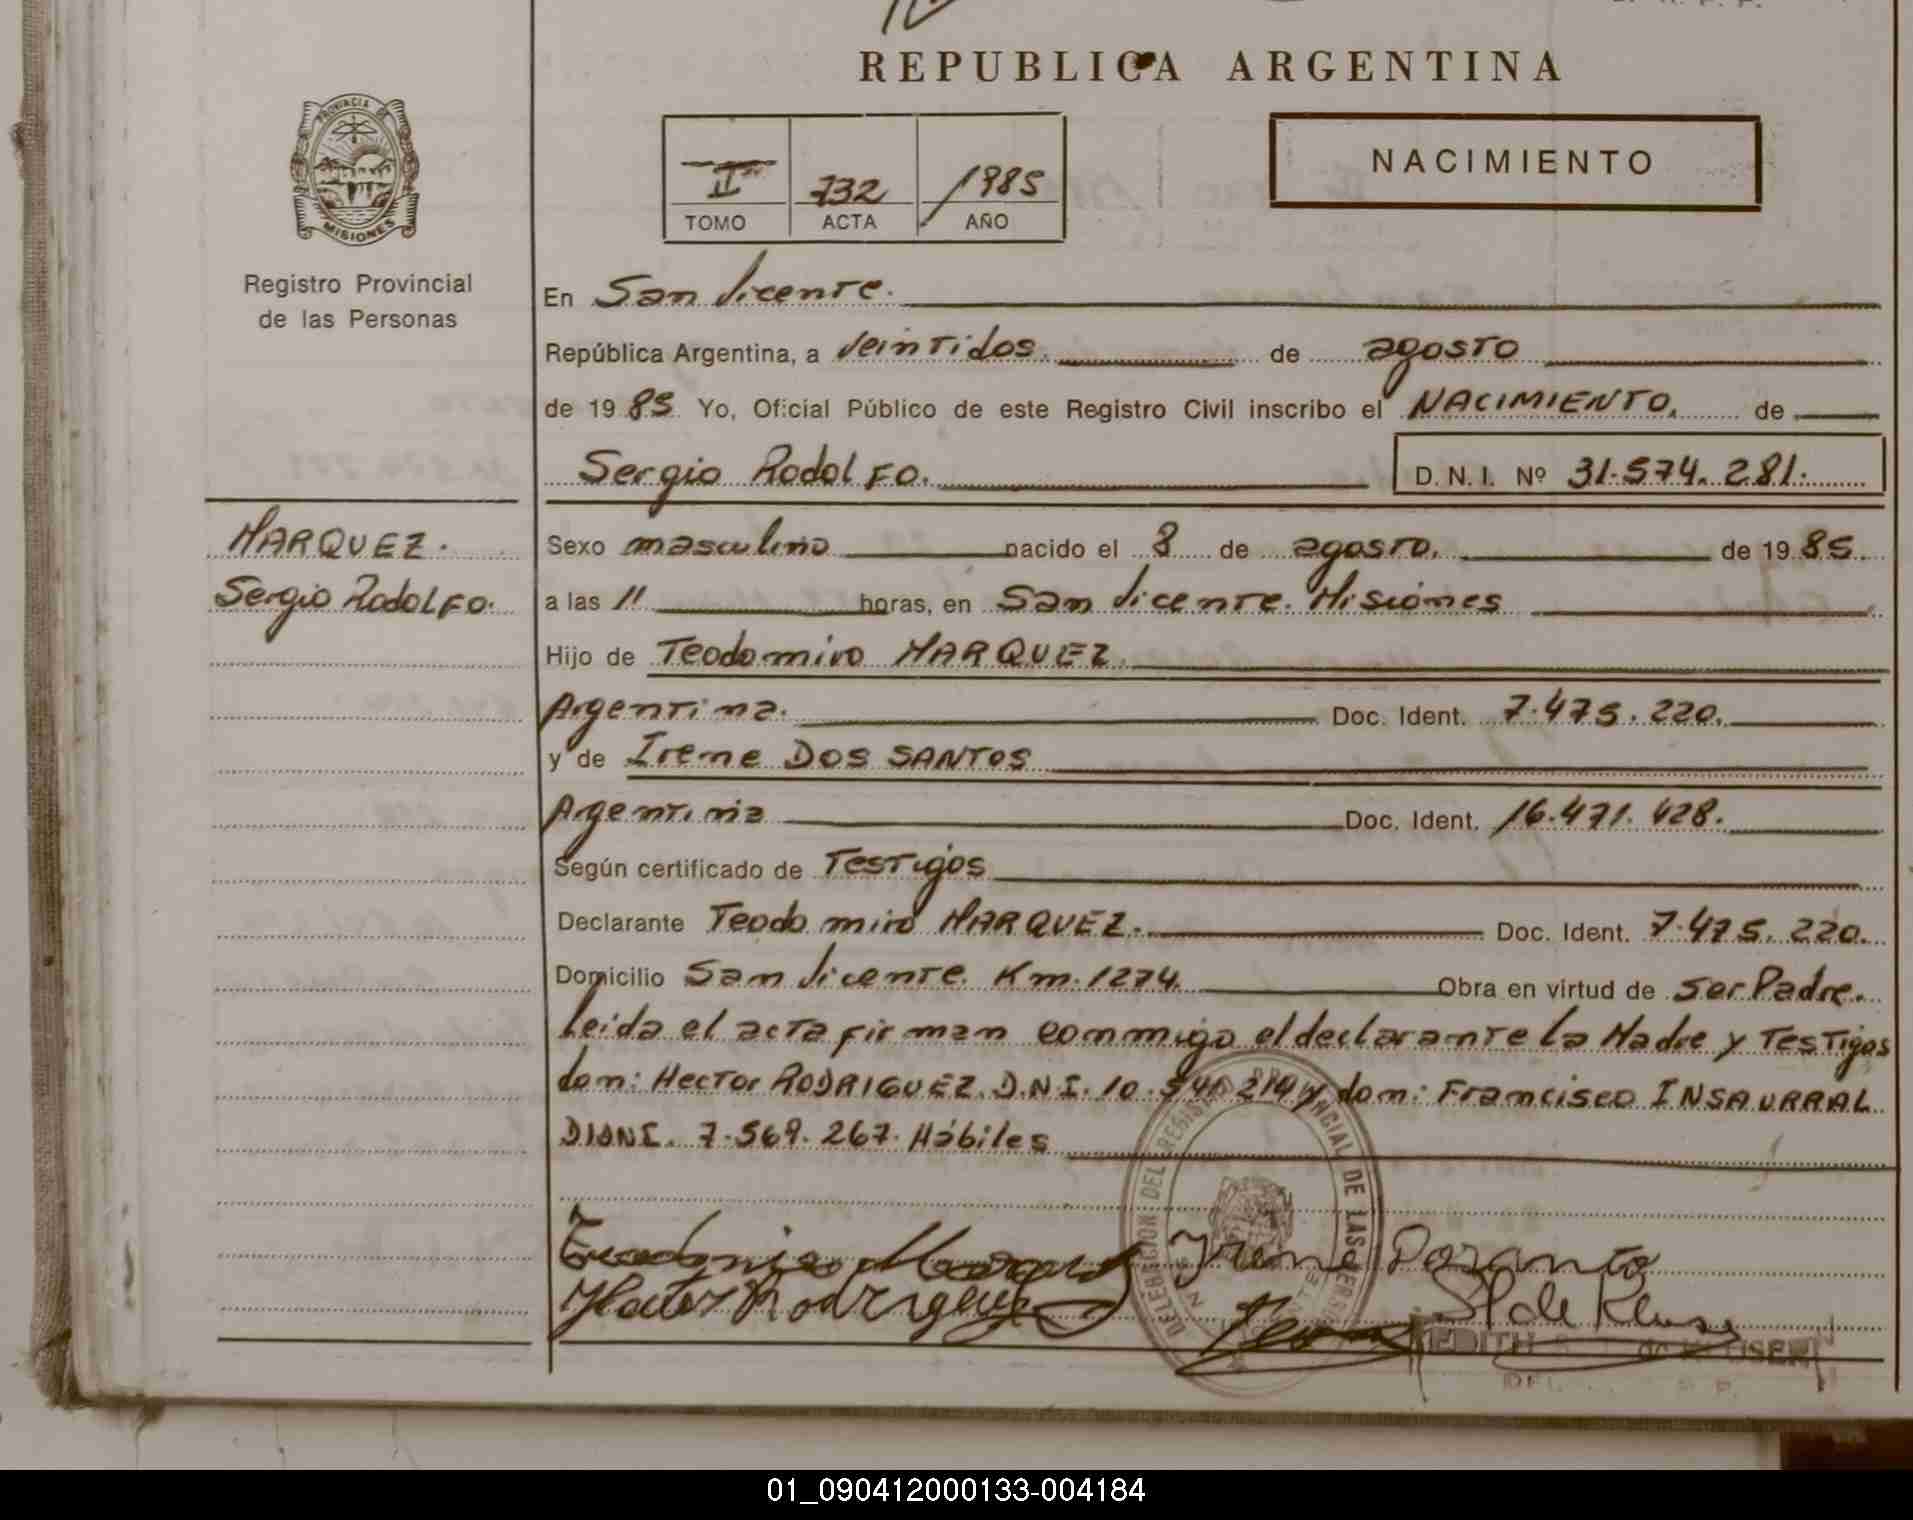 REPUBLICA ARGENTINA
PROVINCIA DE
MISIONES
Registro Provincial
de las Personas
II
TOMO
732
ACTA
1985
AÑO
NACIMIENTO
En San Vicente.
República Argentina, a veintidos. de agosto
de 1985 Yo, Oficial Público de este Registro Civil inscribo el NACIMIENTO. de
Sergio Rodolfo. D.N.I. Nº 31.574.281.
MARQUEZ.
Sergio Rodolfo.
Sexo masculino nacido el 8 de agosto. de 1985.
a las 11 horas, en San Vicente. Misiones
Hijo de Teodomiro MARQUEZ.
Argentina. Doc. Ident. 7.475.220.
y de Irene DOS SANTOS
Argentina Doc. Ident. 16.471.428.
Según certificado de Testigos
Declarante Teodomiro MARQUEZ. Doc. Ident. 7.475.220.
Domicilio San Vicente. Km. 1274. Obra en virtud de ser Padre.
Leida el acta firman conmigo el declarante la Madre y Testigos
don: Hector RODRIGUEZ. D.N.I. 10.541.214 y don: Francisco INSAURRAL
D.N.I. 7.569.267. Hábiles
DELEGACION DEL REGISTRO PROVINCIAL DE LAS PERSONAS
Hector Rodriguez
EDITH
01_090412000133-004184